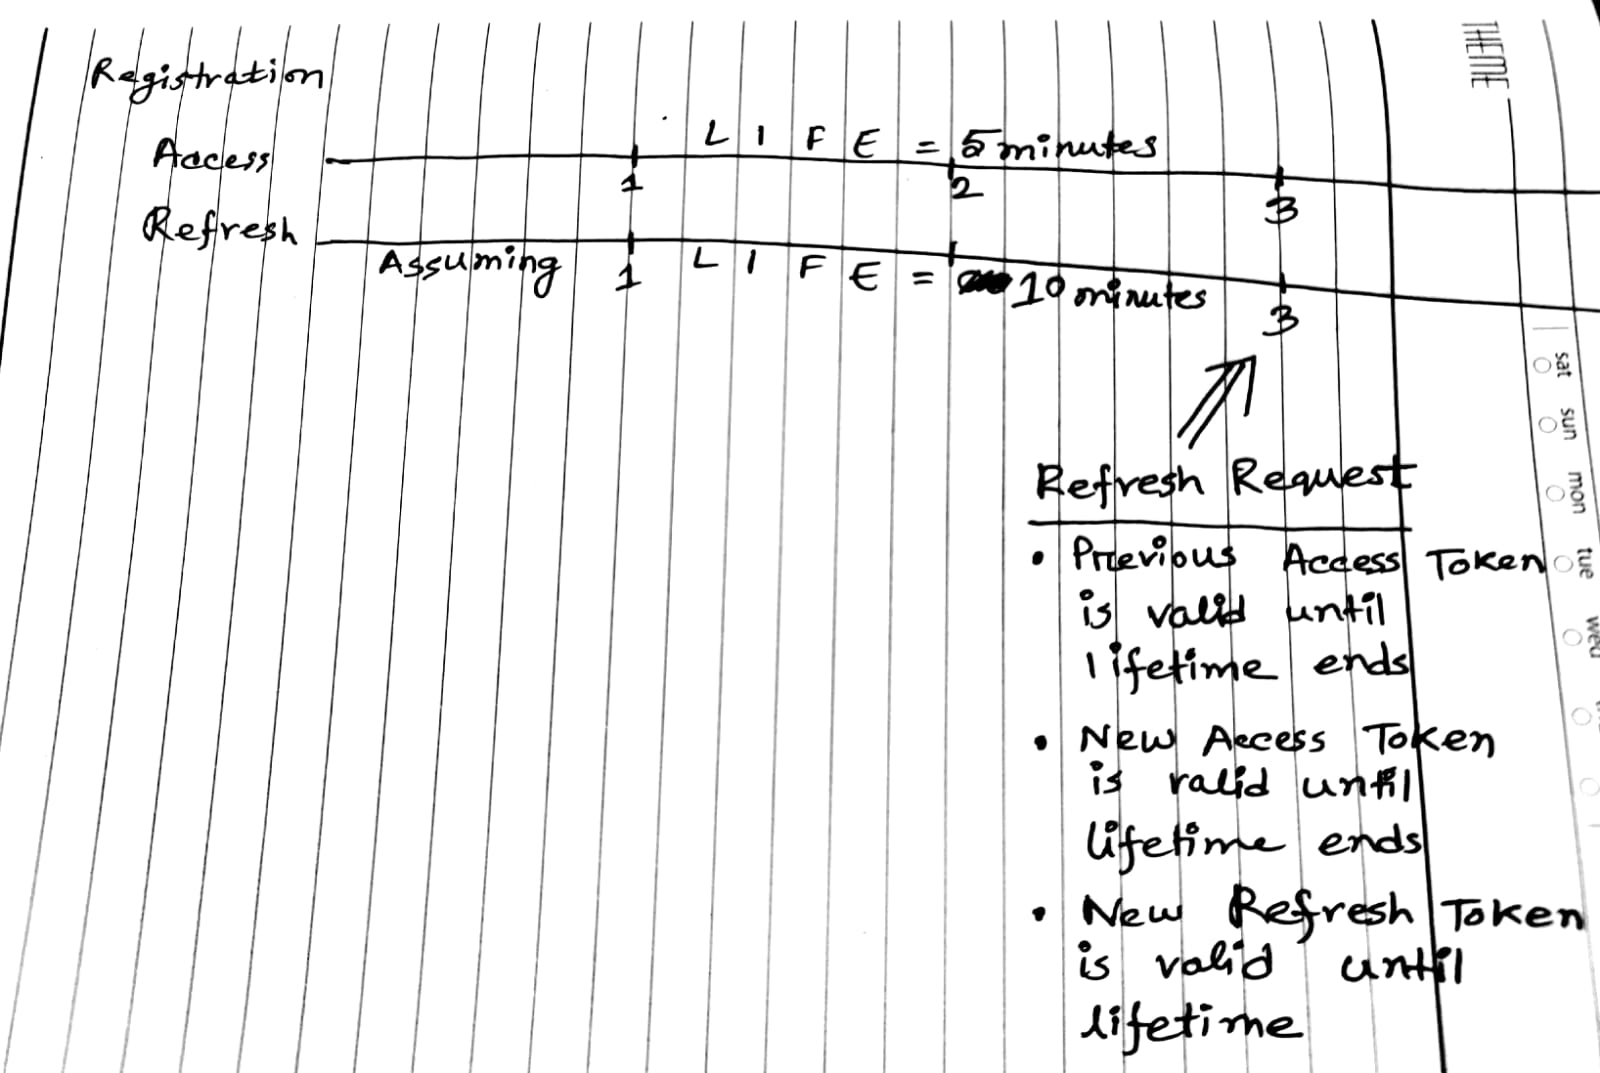 THEME
Registration
Access
L I F E = 5 minutes
1
2
3
Refresh
Assuming
1
L I F E = 10 minutes
3
Refresh Request
• Previous Access Token
is valid until
lifetime ends
• New Access Token
is valid until
lifetime ends
• New Refresh Token
is valid until
lifetime
sat
sun
mon
tue
wed